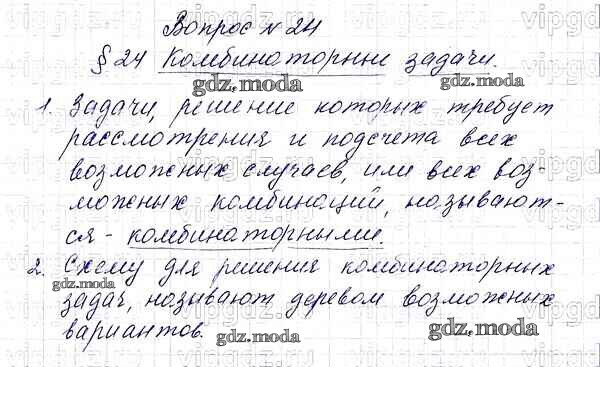 Вопрос № 24
§ 24 Комбинаторные задачи.
1. Задачи, решение которых требует
рассмотрения и подсчета всех
возможных случаев, или всех воз-
можных комбинаций, называют-
ся - комбинаторными.
2. Схему для решения комбинаторных
задач, называют деревом возможных
вариантов.
gdz.moda
gdz.moda
gdz.moda
gdz.moda
gdz.moda